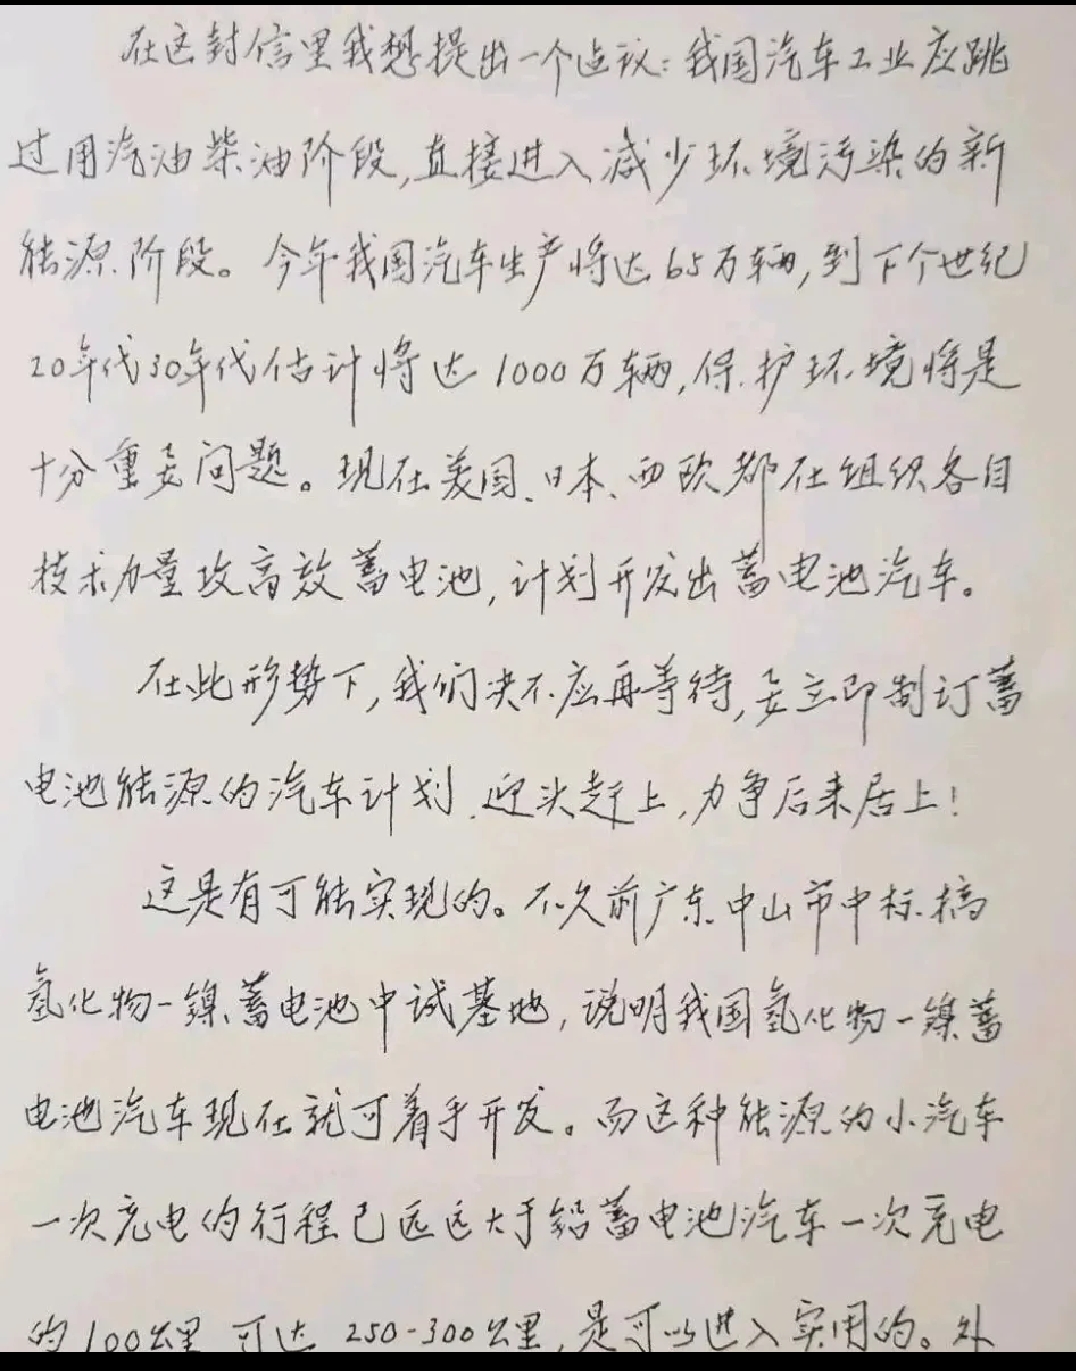 在这封信里我想提出一个建议：我国汽车工业应跳
过用汽油柴油阶段,直接进入减少环境污染的新
能源阶段。今年我国汽车生产将达65万辆,到下个世纪
20年代30年代估计将达1000万辆,保护环境将是
十分重要问题。现在美国、日本、西欧都在组织各自
技术力量攻高效蓄电池,计划开发出蓄电池汽车。
在此形势下,我们决不应再等待,要立即制订蓄
电池能源的汽车计划,迎头赶上,力争后来居上!
这是有可能实现的。不久前广东中山市中标搞
氢化物-镍蓄电池中试基地,说明我国氢化物-镍蓄
电池汽车现在就可着手开发。而这种能源的小汽车
一次充电的行程已远远大于铅蓄电池汽车一次充电
的100公里,可达250-300公里,是可以进入实用的。外